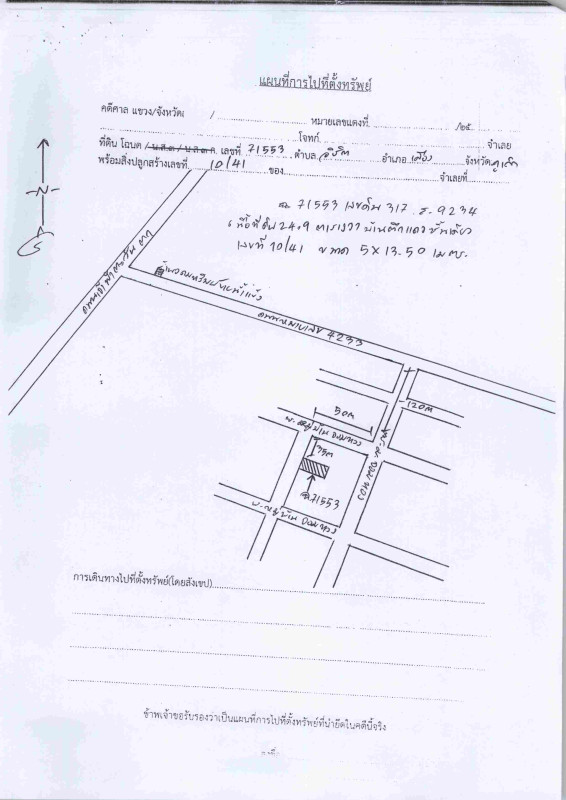 แผนที่การไปที่ตั้งทรัพย์
คดีศาล แขวง/จังหวัด / หมายเลขแดงที่ /๒๕
โจทก์ จำเลย
ที่ดิน โฉนด / น.ส.๓ / น.ส.๓ ก. เลขที่ 71553 ตำบล วิชิต อำเภอ เมือง จังหวัด ภูเก็ต
พร้อมสิ่งปลูกสร้างเลขที่ 10/41 ของ จำเลยที่
N
ฉ. 71553 เลขดิน 317 ส. 9234
เนื้อที่ดิน 24.9 ตารางวา บ้านตึกแถวชั้นเดียว
เลขที่ 10/41 ขนาด 5 x 13.50 เมตร
ถนนเจ้าฟ้าตะวันตก
ถนนหมายเลข 4233
120m
50m
ซ. หมู่บ้าน จอมทอง
35m
ฉ. 71553
ซ. หมู่บ้าน จอมทอง
การเดินทางไปที่ตั้งทรัพย์(โดยสังเขป)
ข้าพเจ้าขอรับรองว่าเป็นแผนที่การไปที่ตั้งทรัพย์ที่นำยึดในคดีนี้จริง